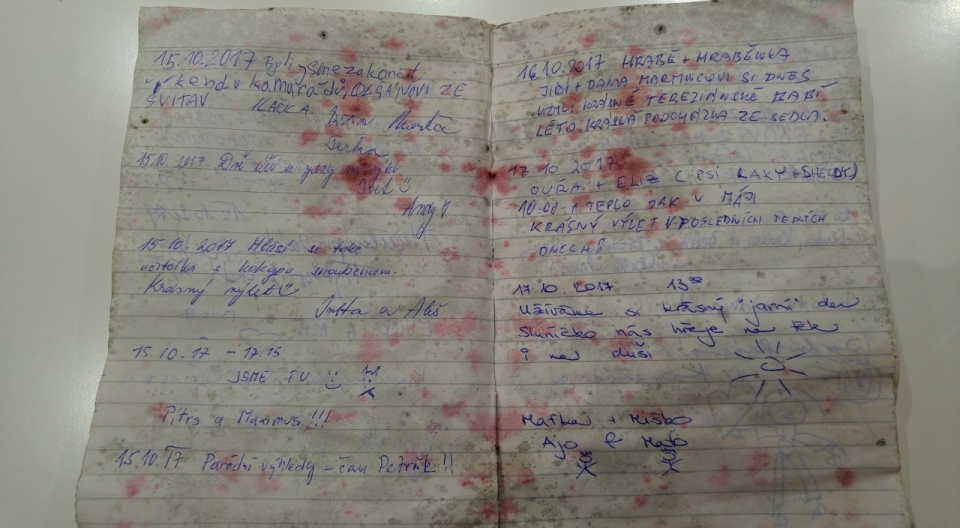 15.10.2017 Byli jsme zakončit
víkendu kamarádů, OLŠANOVI ZE
SVITAV KAČKA.
Terka
15.10. 2017.
Andy
15.10.2017 Hlásí se také
Krásný výlet
Jitka a Aleš
15.10.17 - 17:15
JSME TU
Pítrs a Maximus !!!
15.10.17 Parádní výhledy - čau Petrtík !!
16.10.2017 HRABĚ + HRABĚNKA
JIŘÍ + DANA MARTINCOVI SI DNES
UŽILI KRÁSNÉ TEREZIÁNSKÉ BABÍ
LÉTO. KRÁSNÁ PROCHÁZKA ZE SEDLA.
17.10.2017
+ ELIZ (PSI RAKY + SHELDY)
10:00 A TEPLO JAK V MÁJI
KRÁSNÝ VÝLET V POSLEDNÍCH TEPLÝCH
DNECH
17.10.2017 13
Užíváme si krásný "jarní" den
Sluníčko nás hřeje na těle
i na duši
Maťka + Miško
Ajo & Maťo